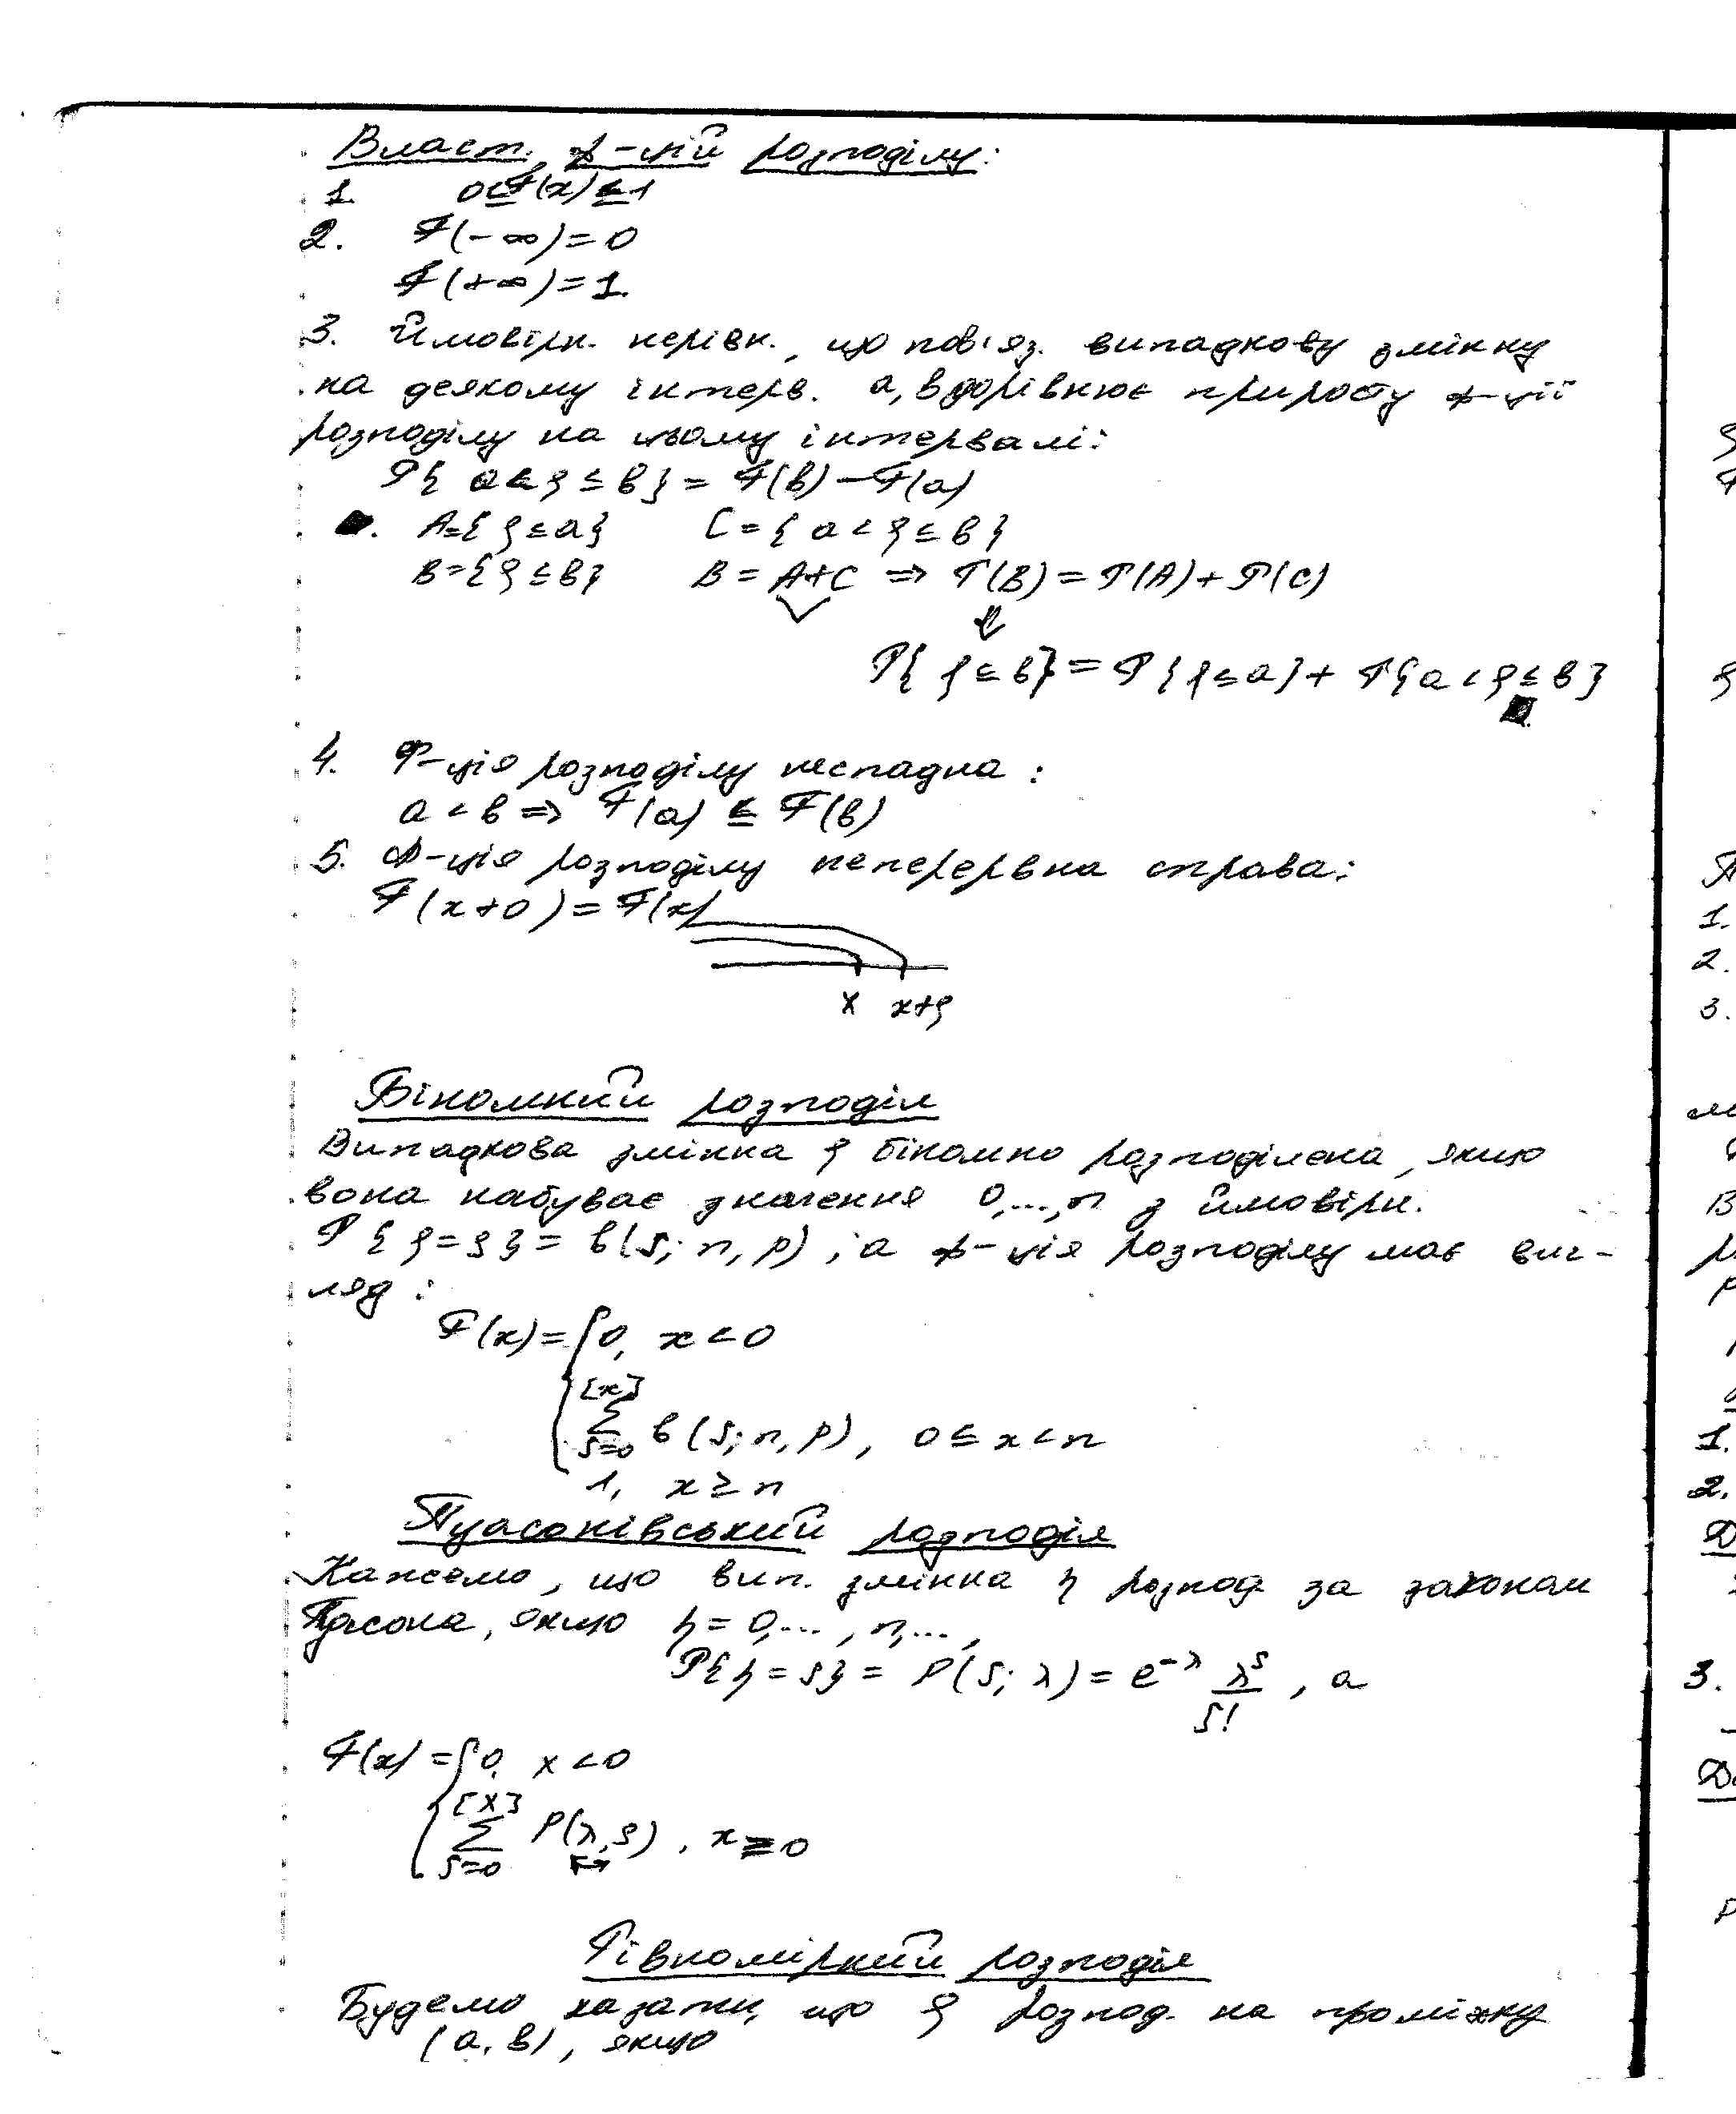 Власт. ф-цій розподілу:
1. 0≤F(x)≤1
2. F(-∞)=0
F(+∞)=1.
3. Ймовірн. нерівн., що пов'яз. випадкову змінну
на деякому інтерв. a, b дорівнює приросту ф-ції
розподілу на цьому інтервалі:
P{ a<ξ≤b} = F(b)-F(a)
A={ξ≤a} C={a<ξ≤b}
B={ξ≤b} B=A+C ⇒ P(B)=P(A)+P(C)
⇓
P{ξ≤b}=P{ξ≤a}+P{a<ξ≤b}
4. Ф-ція розподілу неспадна:
a<b ⇒ F(a)≤F(b)
5. Ф-ція розподілу неперервна справа:
F(x+0)=F(x)
x x+ξ
Біномний розподіл
Випадкова змінна ξ біномно розподілена, якщо
вона набуває значення 0,...,n з ймовірн.
P{ξ=s}=b(s;n,p), а ф-ція розподілу має виг-
ляд:
F(x)={0, x<0
[x]
∑ b(s;n,p), 0≤x<n
s=0
1, x≥n
Пуасонівський розподіл
Кажемо, що вип. змінна η розпод за законом
Пуасона, якщо η=0,...,n,...,
P{η=s}=P(s;λ)=e^{-λ} λ^s/s!, а
F(x)={0, x<0
[x]
∑ P(λ,s), x≥0
s=0
Рівномірний розподіл
Будемо казати, що ξ розпод. на проміжку
(a,b), якщо
1.
2.
3.
1.
2.
3.